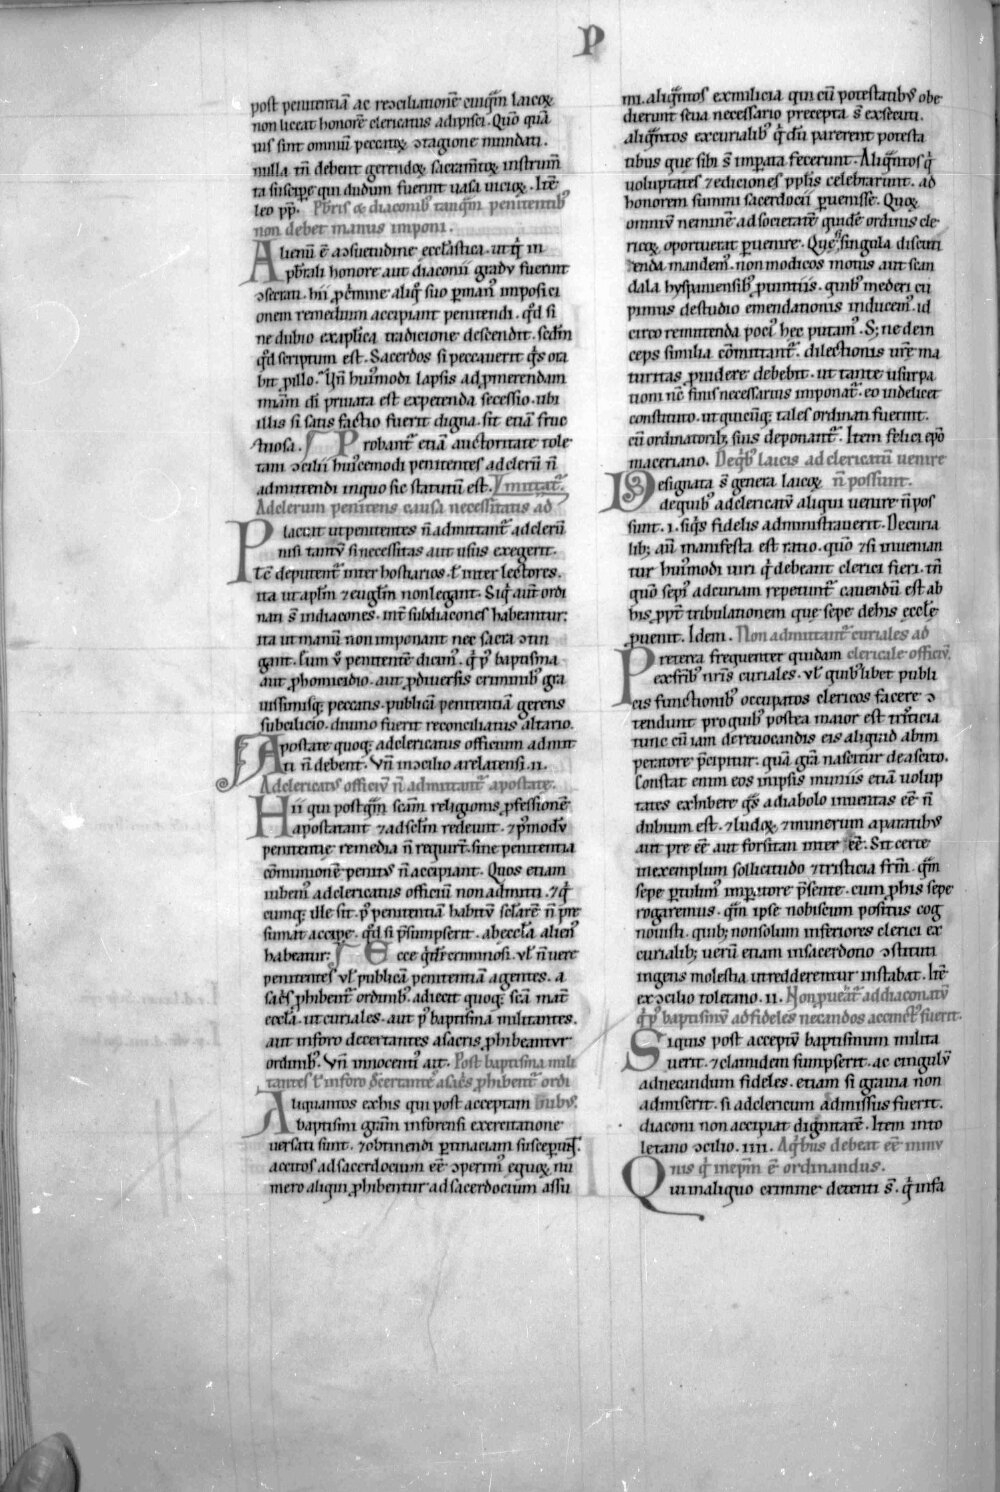 P
post penitentiā ac reↄciliationē cuiq̄m laicoꝝ
non liceat honorē clericatus adipisci. Quō quā
uis sint omniū peccatoꝝ ↄtagione mundati.
nulla tn̄ debent gerendoꝝ sacramtoꝝ instrum̄
ta suscipe qui dudum fuerint uasa uicioꝝ. Itē
leo pp̄. Pb̄ris & diaconibꝰ tanq̄m penitentibꝰ
non debet manus imponi.
Alienū ē a ↄsuetudine eccl̄astica. ut q̄ in
pb̄rali honore aut diaconii gradu fuerint
ↄsecrati. hii ꝓ c̄mine aliq̄ suo ꝑ manꝰ impositi
onem remedium accipiant penitendi. qd̄ si
ne dubio ex aplica tradicione descendit. scd̄m
qd̄ scriptum est. Sacerdos si peccauerit q̄s ora
bit ꝓ illo. Vn̄ huiꝰmodi lapsis ad ꝓmerendam
mi͞am di͞ priuata est expetenda secessio. ubi
illis si satis factio fuerit digna. sit etiā fruc
tuosa. Probantᷣ etiā auctoritate tole
tani ↄcilii huiꝰcemodi penitentes ad clerū n̄
admittendi in quo sic statutū est.
Ad clerum penitens causa necessitatis ad
Placuit ut penitentes n̄ admittantᷣ ad clerū
nisi tantū si necessitas aut usus exegerit.
Tē deputentᷣ inter hostiarios. ł inter lectores.
ita ut apl̄m ⁊ eugl̄m non legant. Siq̄ aut̄ ordi
nati s̄ in diacones. int̄ subdiacones habeantur:
ita ut manū non imponant nec sacra ↄtin
gant. Eum ū penitentē dicimꝰ. q̄ pꝰ baptisma
aut ꝓ homicidio. aut ꝓ diuersis criminibꝰ gra
uissimisq; peccatis. publicā penitentiā gerens
sub cilicio. diuino fuerit reconciliatus altario.
Apostate quoq; ad clericatus officium admit
ti n̄ debent. Vn̄ in ↄcilio arelatensi. ii.
Ad clericatus officiū n̄ admittantᷣ apostate.
Hii qui postq̄m sc̄am religionis ꝓfessionē
apostatant ⁊ ad sclm̄ redeunt. ⁊ pꝰmodū
penitentie remedia n̄ requirt̄. sine penitentia
cōmunionē penitus n̄ accipiant. Quos etiam
iubemꝰ ad clericatus officiū non admitti. ⁊ q̄
cunq; ille sit. pꝰ penitentiā habitū sclarē n̄ pre
sumat accipe. qd̄ si p̄sumpserit. ab eccl̄a alienꝰ
habeatur: Ecce q̄lr̄ criminosi. ul̄ n̄ uere
penitentes ul̄ publicā penitentiā agentes. a
sac̄s ꝓhibentᷣ ordinibꝰ. adiecit quoq; sc̄a mat̄
eccl̄a. ut curiales. aut pꝰ baptisma militantes.
aut in foro decertantes a sacris ꝓhibeantur
ordinibꝰ. Vn̄ innocentiꝰ ait. Post baptisma mili
tantes ł in foro dc̄ertantes a sac̄s ꝓhibentᷣ ordi
Aliquantos ex his qui post acceptam nibus.
baptismi gr̄am in forensi exercitatione
uersati sunt. ⁊ obtinendi ꝑtinaciam susceperunt.
accitos ad sacerdocium eē ↄperimꝰ e quoꝝ nu
mero aliqui ꝓhibentur ad sacerdocium assu
mi. aliq̄ntos ex milicia qui cū potestatibꝰ obe
dierunt seua necessario precepta s̄ exsecuti.
aliq̄ntos ex curialibꝰ q̄ dū parerent potesta
tibus que sibi s̄ imꝑata fecerunt. Aliq̄ntos q̄
uoluptates ⁊ ediciones ppl̄is celebrarunt. ad
honorem summi sacerdocii ꝑuenisse. Quoꝝ
omniū neminē ad societatē quidē ordinis cle
ricoꝝ oportuerat ꝑuenire. Que si singula discuti
enda mandemꝰ. non modicos motus aut scan
dala hyspaniensibꝰ ꝓuintiis. quibꝰ mederi cu
pimus de studio emendationis inducemꝰ. id
circo remittenda pociꝰ hec putamꝰ. S; ne dein
ceps similia cōmittantᷣ. dilectionis ur̄e ma
turitas ꝓuidere debebit. ut tante usurpa
tioni nc̄ finis necessarius imponatᷣ. eo uidelicet
constituto. ut quicūq; tales ordinati fuerint.
cū ordinatorib; suis deponantᷣ. Item felici epō
maceriano. De q̄bꝰ laicis ad clericatū uenire
Designata s̄ genera laicoꝝ n̄ possunt.
de quibꝰ ad clericatū aliqui uenire n̄ pos
sunt. i. siq̄s fidelis administrauerit. De curia
lib; aū manifesta est ratio. quō ⁊ si inuenian
tur huiꝰmodi uiri q̄ debeant clerici fieri. tn̄
quō sepiꝰ ad curiam repetuntᷣ cauendū est ab
his ppt̄ tribulationem que sepe de his eccl̄e
ꝓuenit. Idem. Non admittantᷣ curiales ad
Preterea frequenter quidam clericale officiū.
ex frībꝰ nr̄is curiales. ul̄ quibꝰlibet publi
cis functionibꝰ occupatos clericos facere ↄ
tendunt pro quibꝰ postea maior est tristicia
tunc cū iam de reuocandis eis aliquid ab im
peratore p̄cipitur. quā gr̄a nascitur de ascito.
Constat enim eos in ipsis muniis etiā uolup
tates exhibere q̄s a diabolo inuentas eē n̄
dubium est. ⁊ ludoꝝ ⁊ munerum apparatibꝰ
aut pre eē aut forsitan inter eē. Sit certe
in exemplum sollicitudo ⁊ tristicia fr̄m. q̄m
sepe ꝑtulimꝰ imꝑatore p̄sente. cum ꝓ his sepe
rogaremus. q̄m ipse nobiscum positus cog
nouisti. quib; non solum inferiores clerici ex
curialib; uerū etiam in sacerdotio ↄstituti
ingens molestia ut redderentur instabat. Itē
ex ↄcilio toletano. ii. Non ꝓueat̄ ad diaconatū
q̄ pꝰ baptismū ad fideles necandos accinctꝰ fuerit.
Siquis post acceptū baptismum milita
uerit. ⁊ clamidem sumpserit. ac cingulū
ad necandum fideles. etiam si grauia non
admiserit. si ad clericum admissus fuerit.
diaconi non accipiat dignitatē. Item in to
letano ↄcilio. iiii. A q̄bus debeat eē immu
nis q̄ in epm̄ ē ordinandus.
Qui in aliquo crimine detenti s̄. q̄ infa